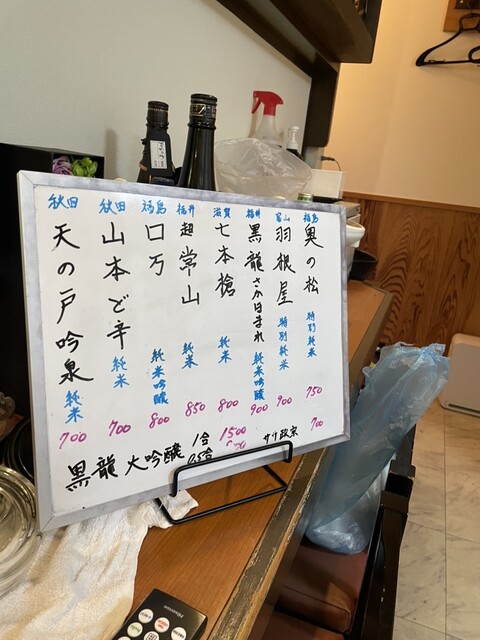 福島 奥の松 特別純米 750
富山 羽根屋 特別純米 900
福井 黒龍 さかほまれ 純米吟醸 900
滋賀 七本槍 純米 800
福井 超常山 純米 850
福島 ロ万 純米吟醸 800
秋田 山本ど辛 純米 700
秋田 天の戸吟泉 純米 700
黒龍 大吟醸 1合 1500
0.5合
政宗 700